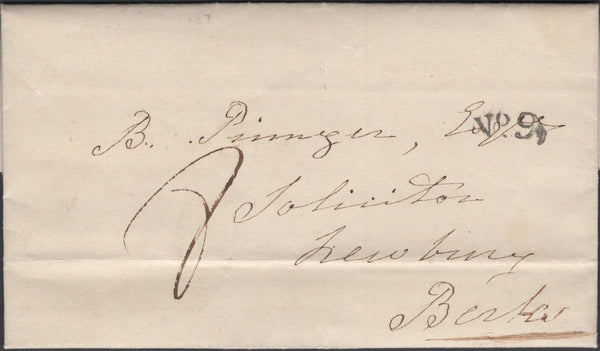 B. Pinniger, Esqr
No. 9
8
Solicitor
Newbury
Berks